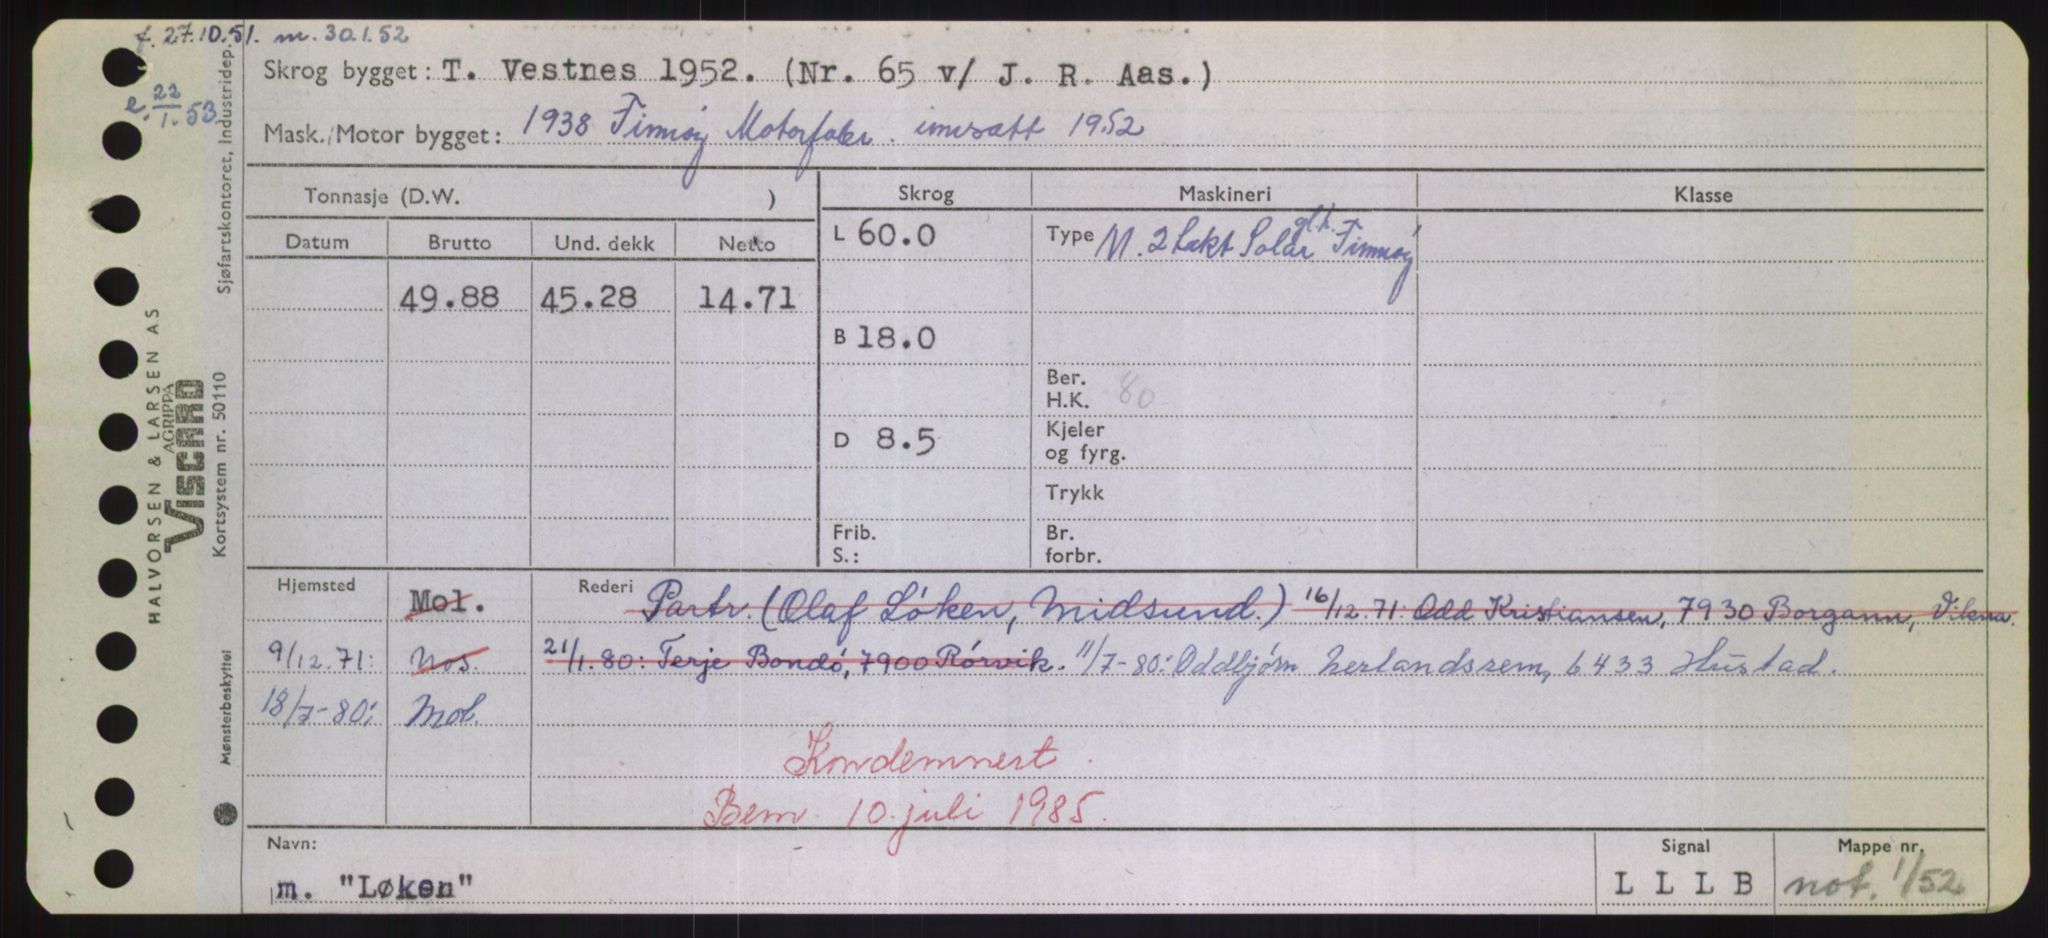 f. 27.10.51. m. 30.1.52
Skrog bygget: T. Vestnes 1952. (Nr. 65 v/ J. R. Aas.)
e. 22/1.53
Mask./Motor bygget: 1938 Finnøy Motorfabr. innsatt 1952
Tonnasje (D.W. )
Skrog Maskineri Klasse
Datum Brutto Und. dekk Netto
L 60.0 Type M. 2 takt Solar glh. Finnøy
49.88 45.28 14.71
B 18.0
Ber. H.K. 80
D 8.5
Kjeler og fyrg.
Trykk
Frib. S.:
Br. forbr.
Hjemsted Mol. Rederi Partr. (Olaf Løken, Midsund.) 16/12.71: Odd Kristiansen, 7930 Borgann, Vikna.
9/12.71: Nos. 21/1.80: Terje Bondø, 7900 Rørvik. 11/7-80: Oddbjørn Nerlandsrem, 6433 Hustad.
18/7-80: Mol.
Kondemnert.
Bem. 10. juli 1985.
Navn: Signal Mappe nr.
m. "Løken" LLLB not. 1/52
HALVORSEN & LARSEN AS
AGRIPPA
VISCARD
Kortsystem nr. 50110
Sjøfartskontoret, Industridep.
Mønsterbeskyttet